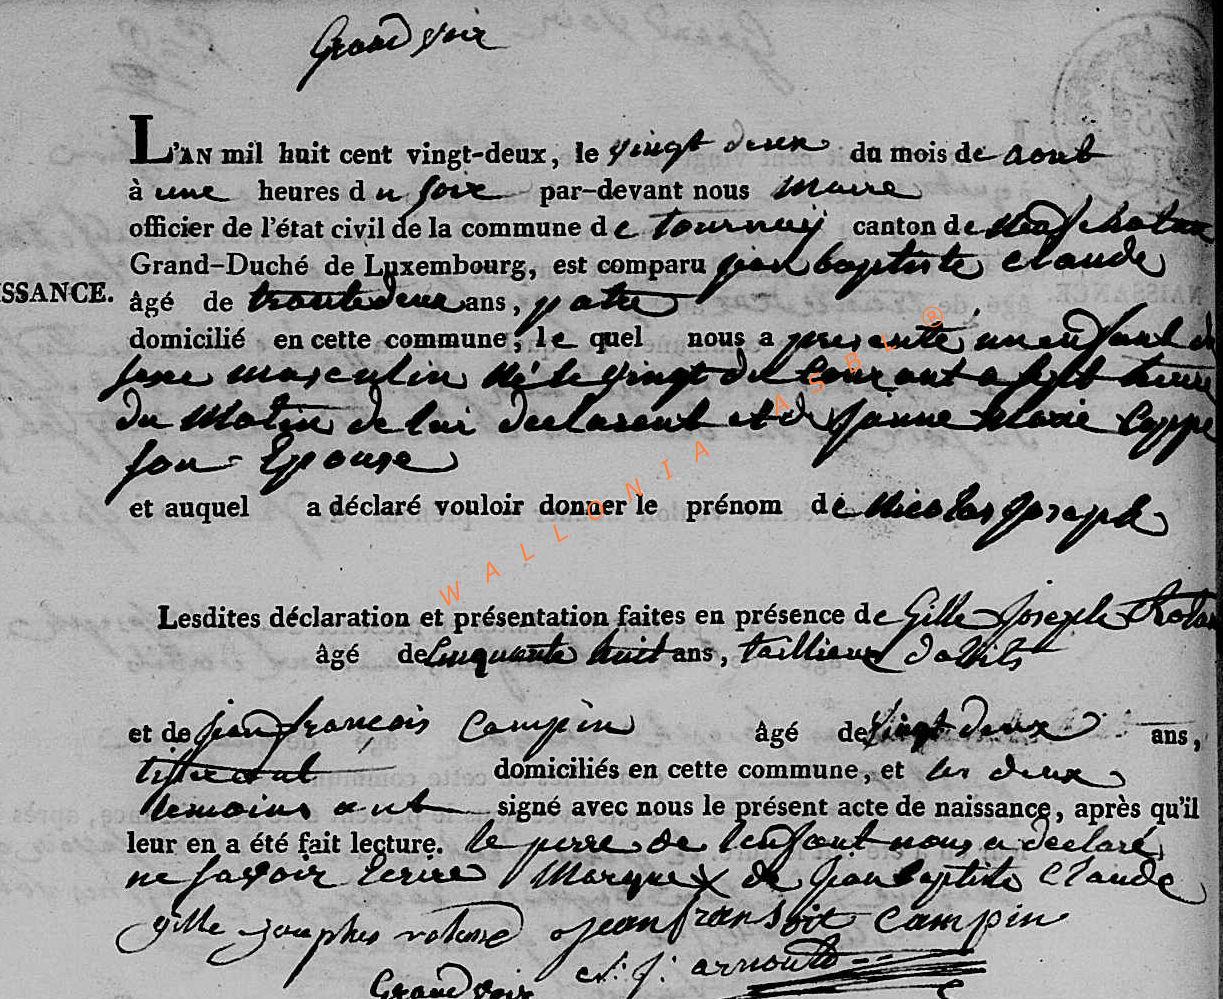 Grandvoir
L'AN mil huit cent vingt-deux, le vingt deux du mois de aout
à une heures du soir par-devant nous maire
officier de l'état civil de la commune de tournay canton de Neufchateau
Grand-Duché de Luxembourg, est comparu jean baptiste Claude
ISSANCE.
âgé de trente deux ans, patre
domicilié en cette commune, le quel nous a presenté un enfant du
sexe masculin né le vingt du courant a sept heure
du Matin de lui declarent et de Janne Marie
son Epouse
et auquel a déclaré vouloir donner le prénom de Nicolas Joseph
Lesdites déclaration et présentation faites en présence de Gille Joseph
âgé de Cinquante huit ans, taillieur d'abits
et de jean francois Campin âgé de vingt deux ans,
tisserant domiciliés en cette commune, et les deux
temoins ont signé avec nous le présent acte de naissance, après qu'il
leur en a été fait lecture. le perre de l'enfant nous a declaré
ne savoir Ecrire Marque X de Jean baptiste Claude
gille jean fransoit campin
Grandvoir
WALLONIA ASBL ®